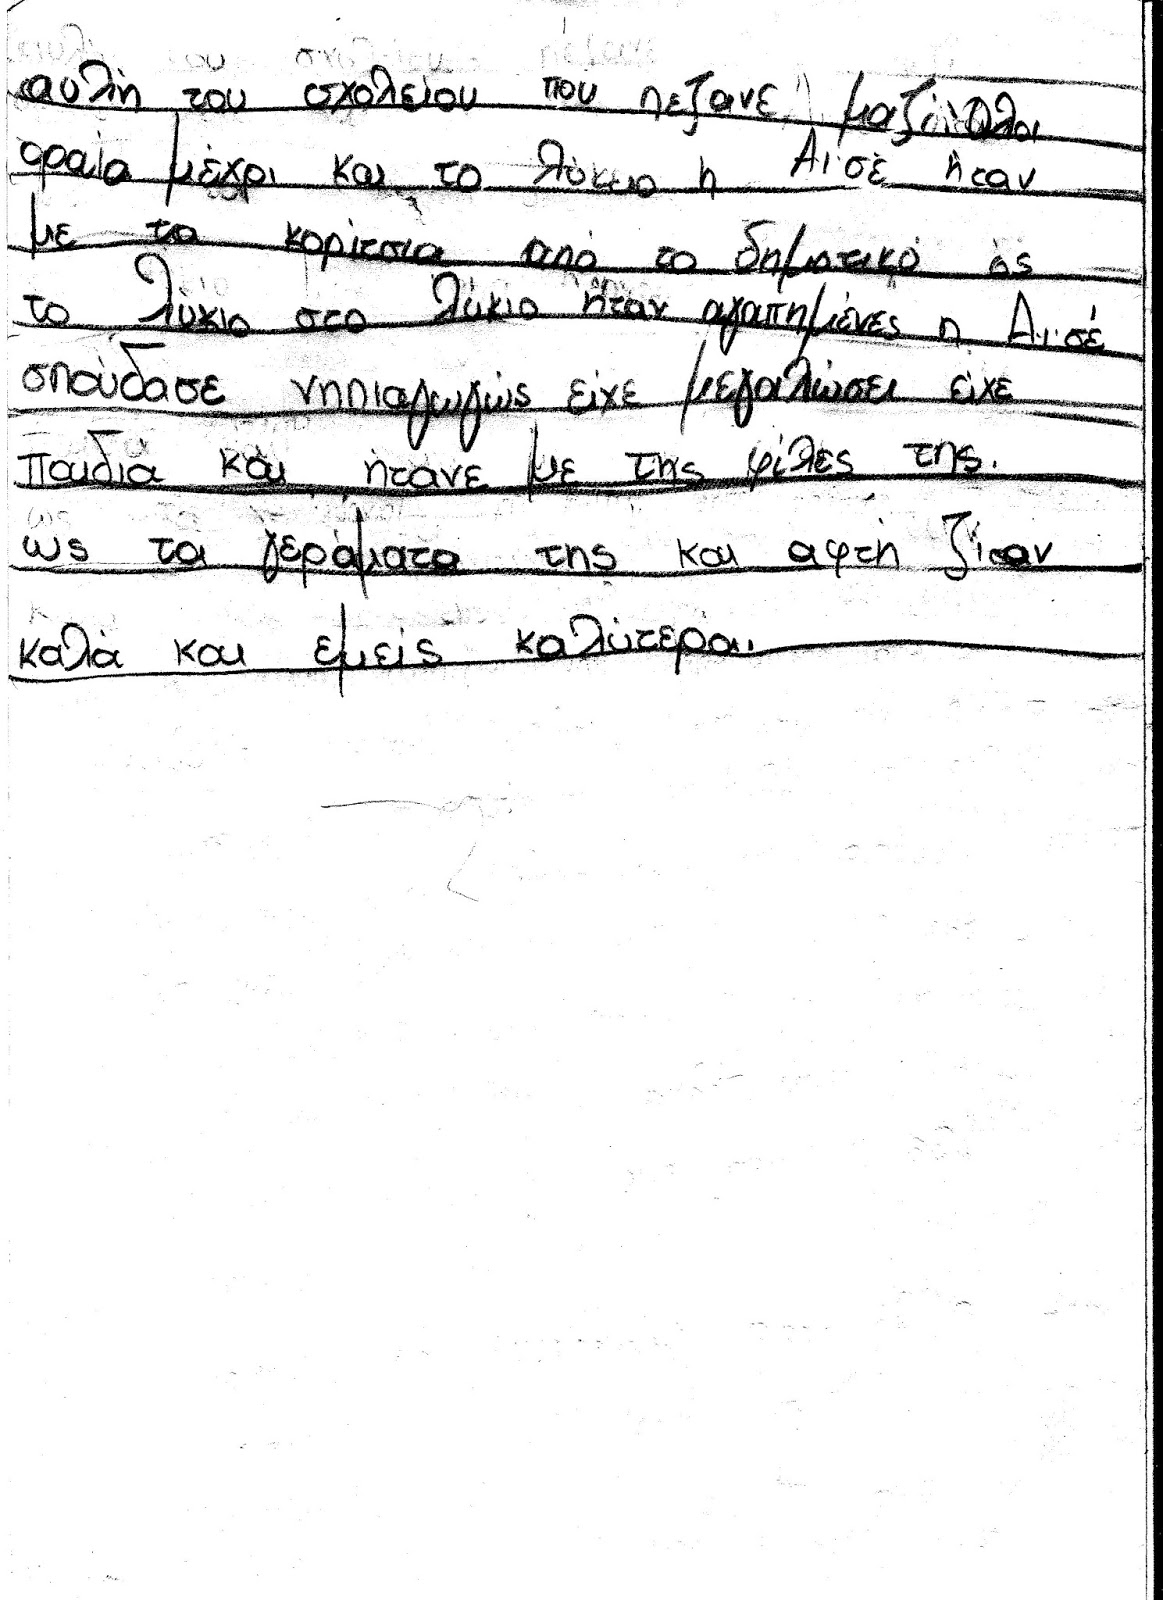 αυλή του σχολείου που πεζανε μαζί όλοι
οραία μέχρι και το λύκιο η Αϊσέ ήταν
με τα κορίτσια από το δηματικό ός
το λύκιο στο λύκιο ήταν αγαπημένες η Αϊσέ
σπούδασε νηπιαγωγώς είχε μεγαλώσει είχε
παιδιά και ήτανε με της φίλες της.
ως τα γεράματα της και αφτή ζίσαν
καλά και εμείς καλύτερα..